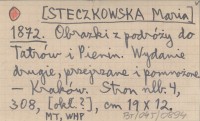 [STECZKOWSKA Maria]
1872. Obrazki z podróży do
Tatrów i Pienin. Wydanie
drugie, przejrzane i pomnożone
- Kraków. Stron nlb. 4,
308, [okł.?], cm 19 x 12.
MT, WHP